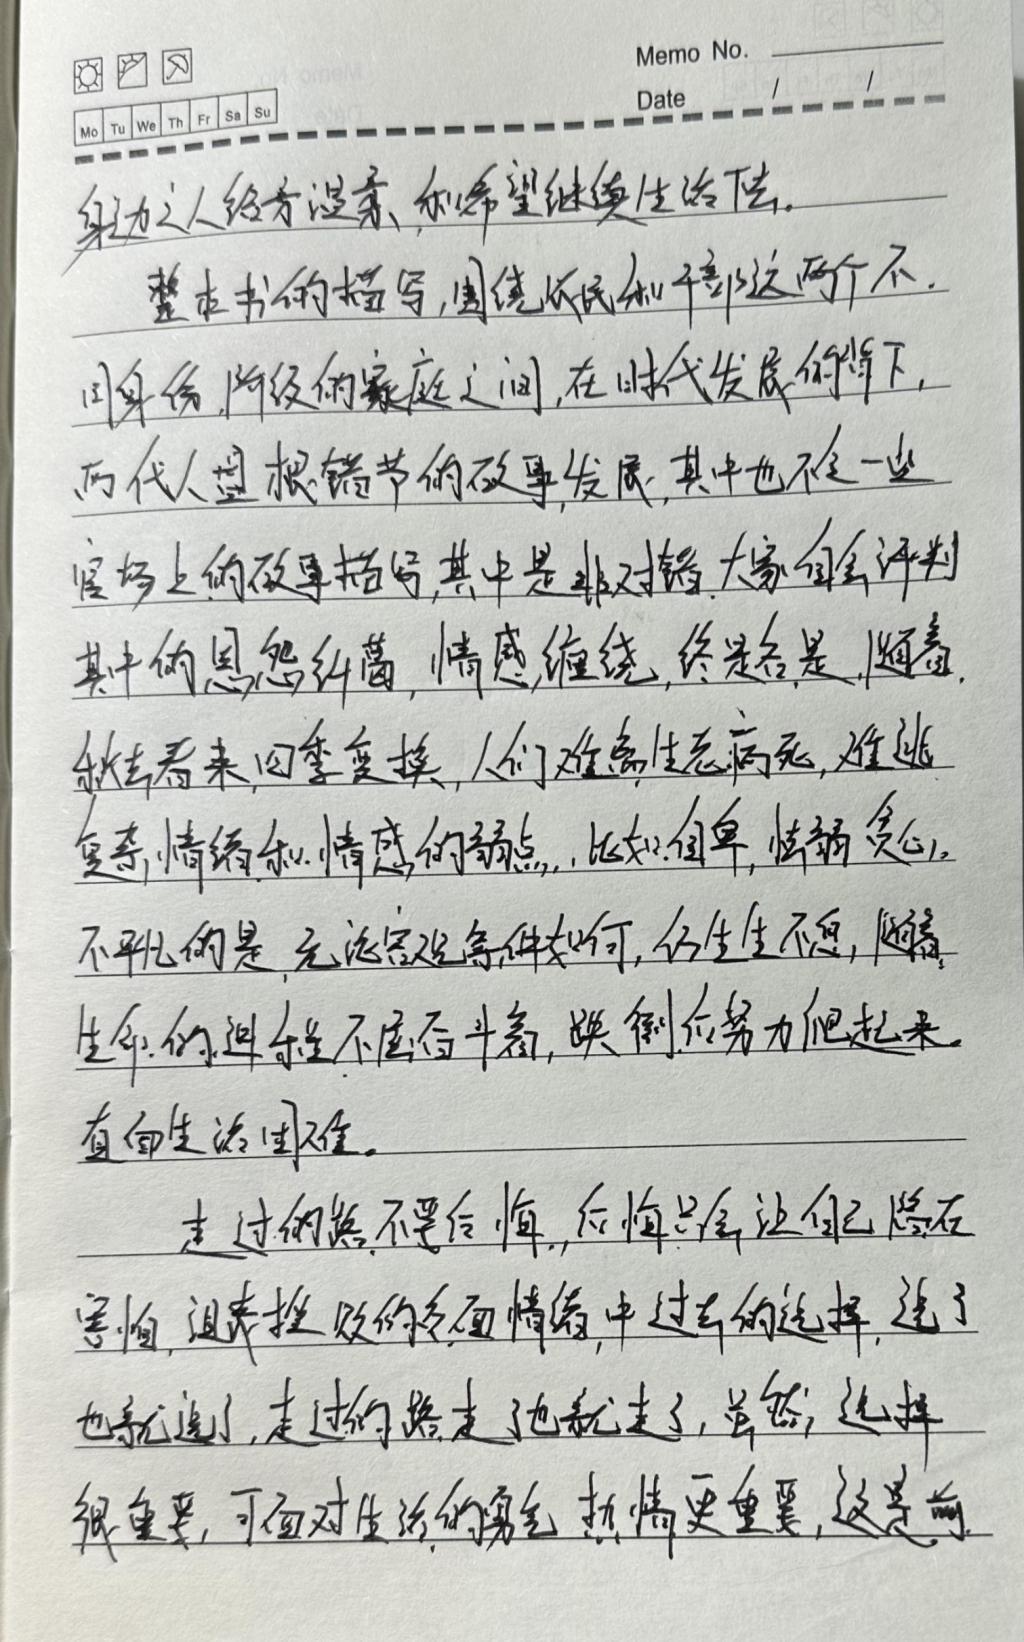 Memo No.
Date / /
Mo Tu We Th Fr Sa Su
身边之人给予温柔、和希望继续生活下去。
整本书的描写,围绕农民和干部这两个不
同身份,阶级的家庭之间,在时代发展的背下,
两代人盘根错节的故事,发展,其中也不乏一些
官场上的故事描写,其中是非对错,大家自会评判
其中的恩怨纠葛,情感,缠绕,终是否是,随着,
秋去春来,四季变换,人们难离生老病死,难逃
复杂,情绪和情感的弱点,比如:自卑,怯弱 贪心,
不平凡的是,无论客观条件如何,仍生生不息,随着,
生命的进程不屈奋斗着,跌倒后努力爬起来。
直面生活困难。
走过的路,不要后悔,后悔只会让自己 在
害怕,沮丧挫败的负面情绪,中过去的选择,选了
也就选了,走过的路走了也就走了,虽然,选择
很重要,可面对生活的勇气 热情更重要,这是前